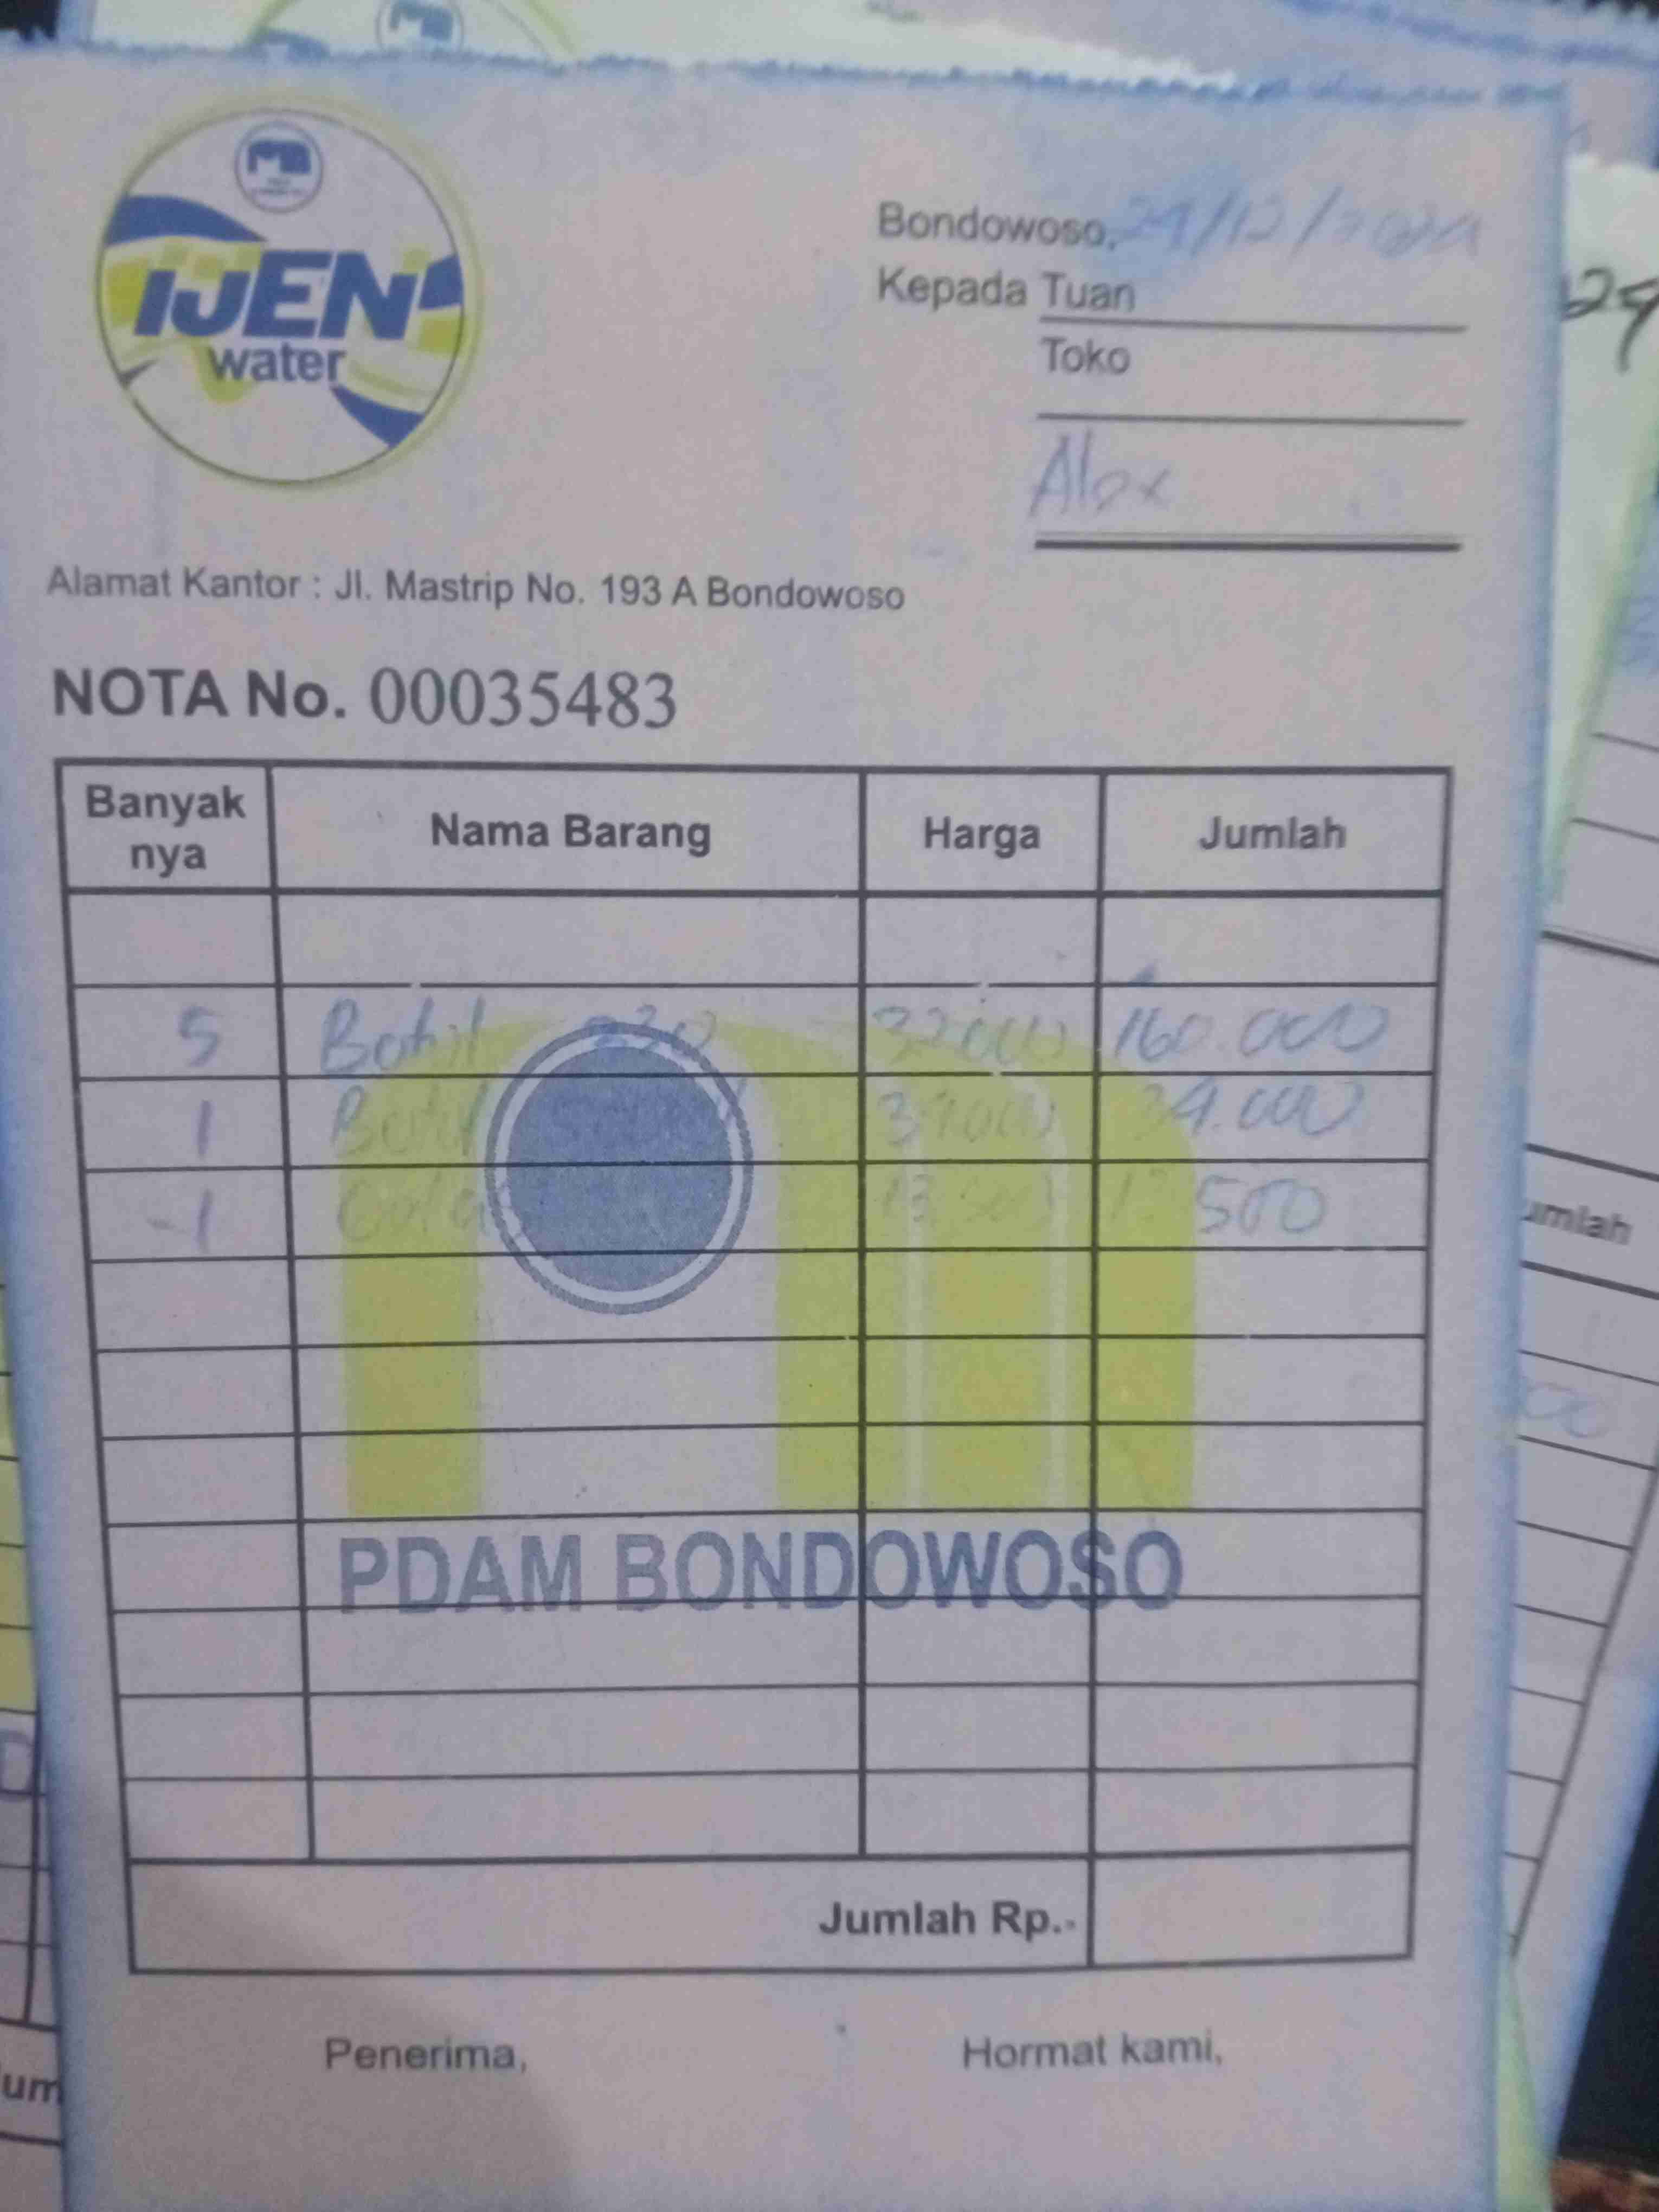 IJEN
water
Bondowoso, 24/12/2024
Kepada Tuan
Toko
Alex
Alamat Kantor : Jl. Mastrip No. 193 A Bondowoso
NOTA No. 00035483
Banyak nya Nama Barang Harga Jumlah
5 Botol 330 32.000 160.000
1 Botol 39.000 39.000
1 Gelas 13.500 500
PDAM BONDOWOSO
Jumlah Rp.-
Penerima, Hormat kami,
umlah
um